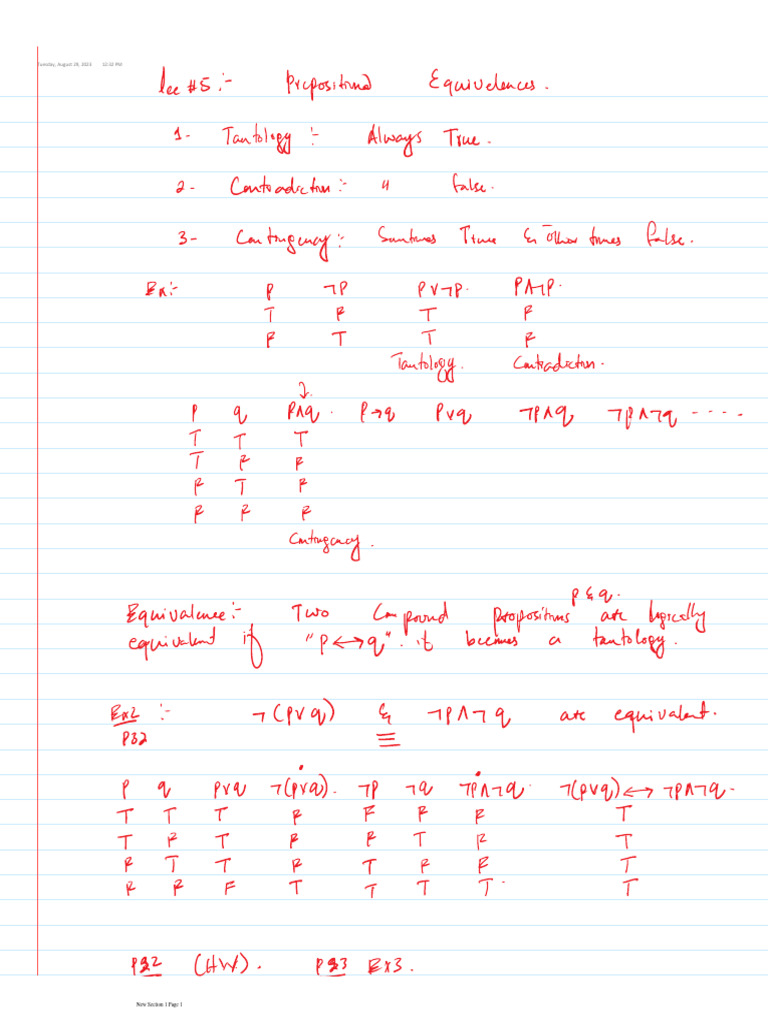 Tuesday, August 29, 2023 12:32 PM
lec #5:- Propositional Equivelences.
1- Tautology :- Always True.
2- Contradiction:- " false.
3- Contingency:- Somtimes True & Other times false.
Ex:- P ¬P P∨¬P. P∧¬P.
T F T F
F T T F
Tautology. Contradiction.
P q P∧q. P→q P∨q ¬P∧q ¬P∧¬q ----
T T T
T F F
F T F
F F F
Contingency.
P & q.
Equivalence:- Two Compound propositions are logically
equivalent if "P↔q". it becomes a tautology.
Ex2 :- ¬(P∨q) & ¬P∧¬q are equivalent.
P32 ≡
P q P∨q ¬(P∨q). ¬P ¬q ¬P∧¬q ¬(P∨q)↔¬P∧¬q.
T T T F F F F T
T F T F F T F T
F T T F T F F T
F F F T T T T. T
P32 (HW). P33 Ex3.
New Section 1 Page 1